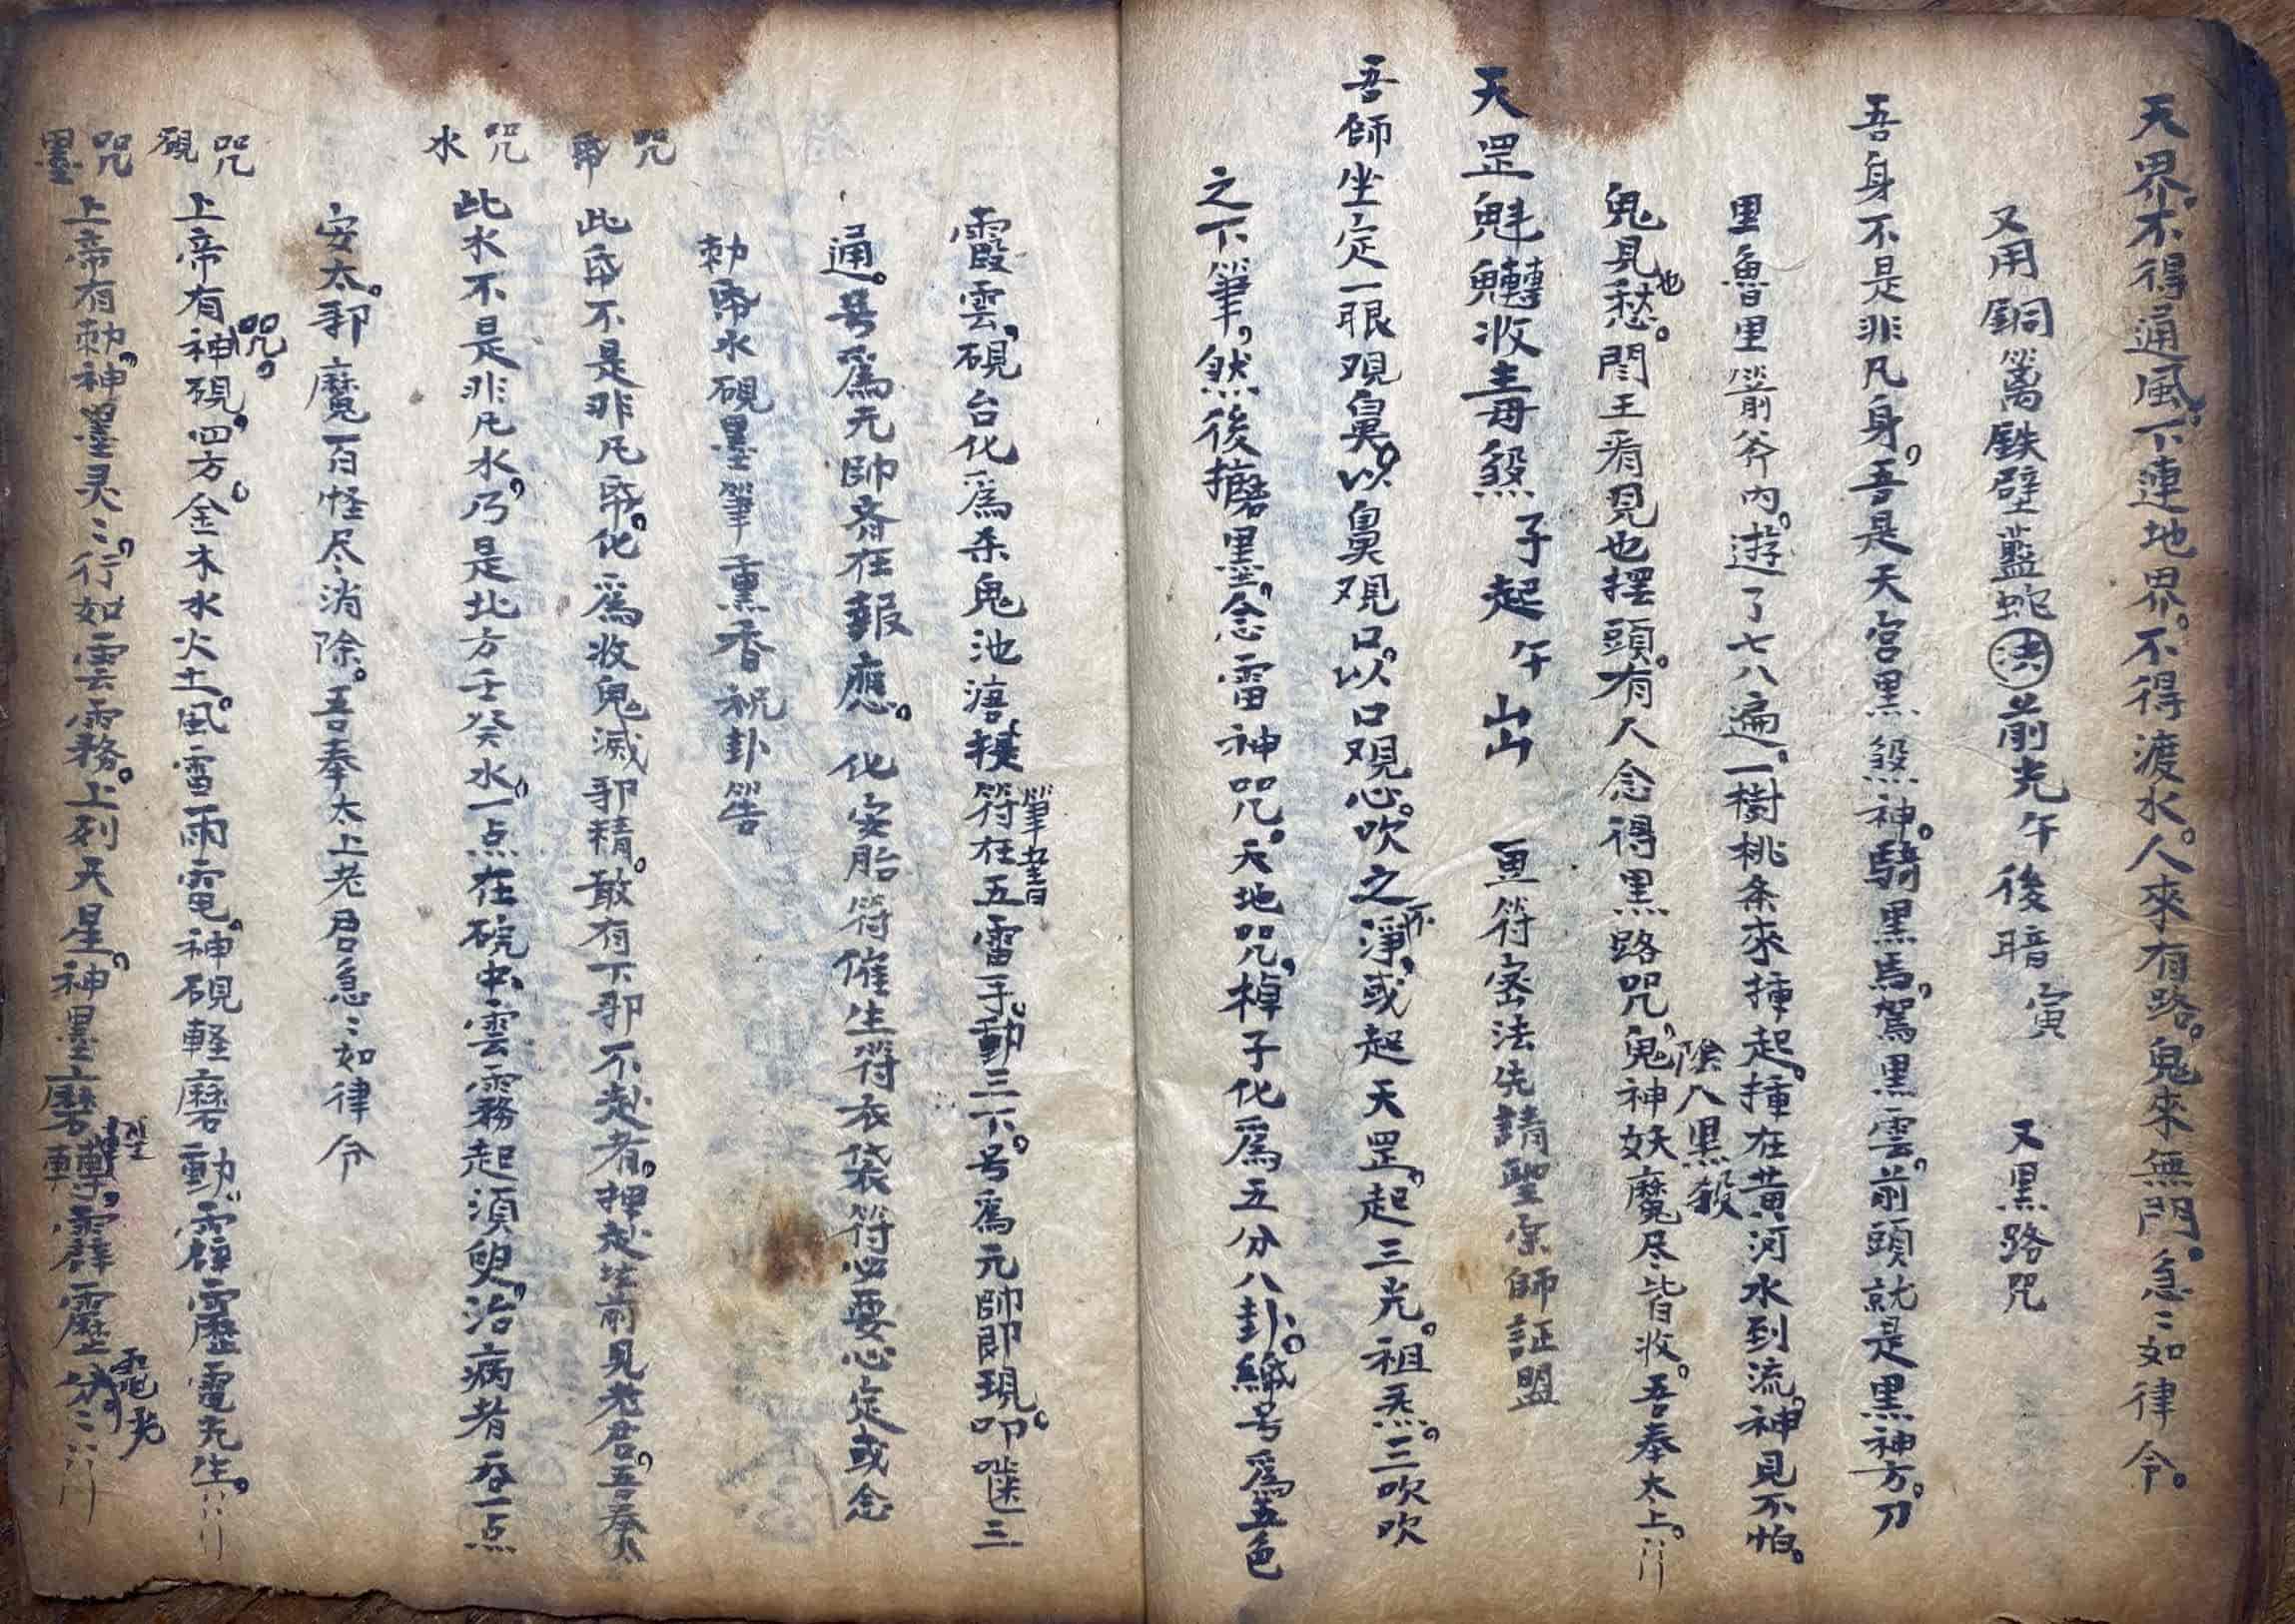 天界不得通風。下連地界。不得渡水。人來有路。鬼來無門。急〻如律令。
又用銅篱鉄壁蓝蛇㳒前光午後暗寅 又黑路咒
吾身不是非凡身。吾是天宮黑煞神。騎黑馬。駕黑雲。前頭就是黑神方。刀
里魯里箭斧内。遊了七八遍。一樹桃条來揷起。揷在黄河水到流。神見不怕。
鬼見愁。閆王看見也摆頭。有人念得黑路咒。鬼神妖魔尽皆收。吾奉太上。
地
陰八黑殺
天罡魁魒收主毒煞 子起午出 画符宻法先請聖宗師証盟
吾師坐定一眼观鼻。以鼻观口。以口观心。吹之淨。或起天罡。起三光。祖炁。三吹吹
不
之下筆。然後擵墨。念雷神咒。天地咒。棹子化爲五分八卦。緘号爲五色
霞雲。硯台化爲杀鬼池 符在五雷手。動三下。号爲元帥即現。叩 三
筆
通。号爲元帥斉在報應。化安胎符催生符衣袋符必要心定或念
勅帋水硯墨筆熏香祝卦筶
帋咒 此帋不是非凡帋。化爲收鬼滅邪精。敢有下邪不赴者。押赴坛前見老君。吾奉太
水咒 此水不是非凡水。乃是北方壬癸水。一点在硯中雲霧起須臾。治病者吞一点
安太。邪魔百怪尽消除。吾奉太上老君急〻如律令
硯咒 上帝有神硯。四方。金木水火土。風雪雨電。神硯軽磨動。霹靂電光生。
咒
墨咒 上帝有勅。神墨灵〻。行如雲霧。上列天星。神墨磨轉。霹靂分〻
軽
電光